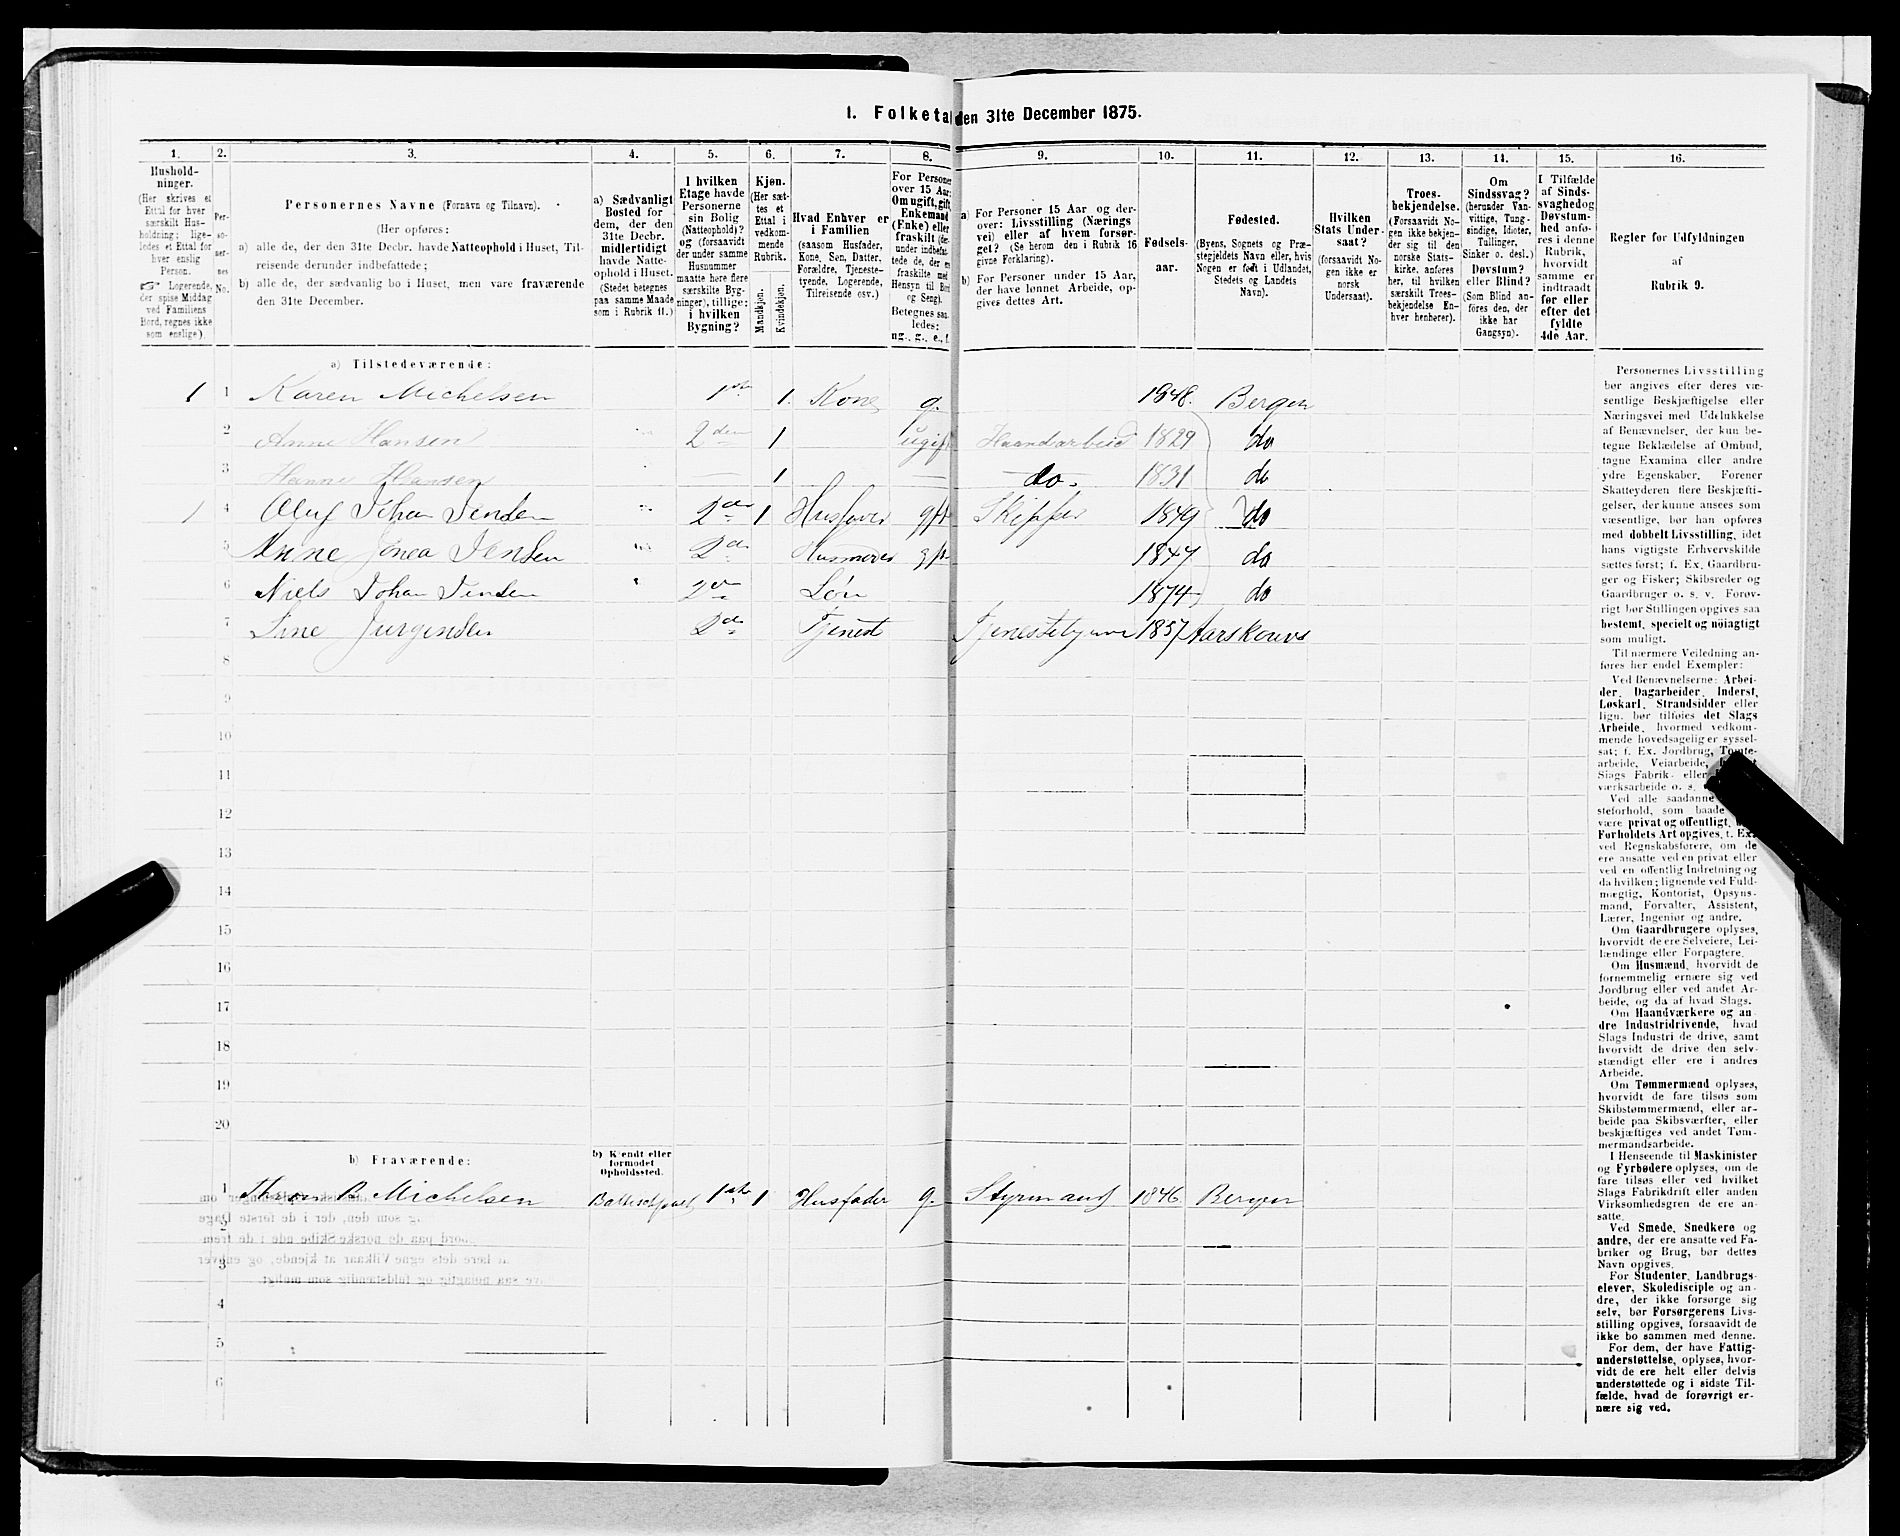 1. Folketal den 31te December 1875.
1.
2.
3.
4.
5.
6.
7.
8.
9.
10.
11.
12.
13.
14.
15.
16.
Hushold-
ninger.
(Her skrives et
Ettal for hver
særskilt Hus-
holdning; lige-
ledes et Ettal for
hver enslig
Person.
☞ Logerende,
der spise Middag
ved Familiens
Bord, regnes ikke
som enslige).
Per-
so-
ner-
nes
No.
Personernes Navne (Fornavn og Tilnavn).
(Her opføres:
a) alle de, der den 31te Decbr. havde Natteophold i Huset, Til-
reisende derunder indbefattede;
b) alle de, der sædvanlig bo i Huset, men vare fraværende
den 31te December.
a) Sædvanligt
Bosted for
dem, der den
31te Decbr.
midlertidigt
havde Natte-
ophold i Huset.
(Stedet betegnes
paa samme Maade
som i Rubrik 11.)
I hvilken
Etage havde
Personerne
sin Bolig
(Natteophold)?
og (forsaavidt
der under samme
Husnummer
maatte høre flere
særskilte Byg-
ninger), tillige:
i hvilken
Bygning?
Kjøn.
(Her sæt-
tes et
Ettal i
vedkom-
mende
Rubrik.
Mandkjøn.
Kvindekjøn.
Hvad Enhver er
i Familien
(saasom Husfader,
Kone, Søn, Datter,
Forældre, Tjeneste-
tyende, Logerende,
Tilreisende osv.)
For Personer
over 15 Aar:
Om ugift, gift,
Enkemand
(Enke) eller
fraskilt (der-
under indbefat-
tede de, der er
fraskilte med
Hensyn til Bord
og Seng).
Betegnes saa-
ledes:
ug., g., e., f.
a) For Personer 15 Aar og der-
over: Livsstilling (Nærings
vei) eller af hvem forsør-
get? (Se herom den i Rubrik 16
givne Forklaring).
b) For Personer under 15 Aar,
der have lønnet Arbeide, op-
gives dettes Art.
Fødsels-
aar.
Fødested.
(Byens, Sognets og Præ-
stegjeldets Navn eller, hvis
Nogen er født i Udlandet,
Stedets og Landets
Navn).
Hvilken
Stats Under-
saat?
(forsaavidt No-
gen ikke er
norsk
Undersaat).
Troes-
bekjendelse.
(Forsaavidt No-
gen ikke bekjen-
der sig til den
norske Stats-
kirke, anføres
her, til hvilken
særskilt Troes-
bekjendelse En-
hver henhører).
Om
Sindssvag?
(herunder Van-
vittige, Tung-
sindige, Idioter,
Tullinger,
Sinker o. desl.)
Døvstum?
eller Blind?
(Som Blind an-
føres den, der
ikke har
Gangsyn).
I Tilfælde
af Sinds-
svaghed og
Døvstum-
hed anfø-
res i denne
Rubrik,
hvorvidt
samme er
indtraadt
før eller
efter det
fyldte
4de Aar.
Regler for Udfyldningen
af
Rubrik 9.
a) Tilstedeværende:
1 1 Karen Michelsen 1ste 1. Kone g. 1848. Bergen
2 Anne Hansen 2den 1 ugift Haandarbeid 1829 do
3 Hanne Hansen — 1 — do. 1831 do
1 4 Oluf Johan Jensen 2de 1 Husfader gft Skipper 1849 do
5 Anne Jensen 2de Husmoder gft 1847 do
6 Niels Johan Jensen 2de Søn 1874 do
7 Sine Jurgensen 2de Tjenest 1857
8
9
10
11
12
13
14
15
16
17
18
19
20
b) Fraværende:
b) Kjendt eller
formodet
Opholdssted.
1 Michelsen 1ste 1 Husfader g. Styrmand 1846 Bergen
2
3
4
5
6
Personernes Livsstilling
bør angives efter deres væ-
sentlige Beskjæftigelse eller
Næringsvei med Udelukkelse
af Benævnelser, der kun be-
tegne Beklædelse af Ombud,
tagne Examina eller andre
ydre Egenskaber. Forener
Skatteyderen flere Beskjæfti-
gelser, der kunne ansees som
væsentlige, bør han opføres
med dobbelt Livsstilling, idet
hans vigtigste Erhvervskilde
sættes først; f. Ex. Gaardbru-
ger og Fisker; Skibsreder og
Gaardbruger o. s. v. Forøv-
rigt bør Stillingen opgives saa
bestemt, specielt og nøiagtigt
som muligt.
Til nærmere Veiledning an-
føres her endel Exempler:
Ved Benævnelserne: Arbei-
der, Dagarbeider, Inderst,
Løskarl, Strandsidder eller
lign. bør tilføies det Slags
Arbeide, hvormed vedkom-
mende hovedsagelig er syssel-
sat; f. Ex. Jordbrug, Tomte-
arbeide, Veiarbeide,
Slags Fabrik- eller
værksarbeide o. s.
Ved alle saadanne
steforhold, som baade
være privat og offentligt,
Forholdets Art opgives, f. Ex.
ved Regnskabsførere, om de
ere ansatte ved en privat eller
ved en offentlig Indretning og
da hvilken; lignende ved Fuld-
mægtig, Kontorist, Opsyns-
mand, Forvalter, Assistent,
Lærer, Ingeniør og andre.
Om Gaardbrugere oplyses,
hvorvidt de ere Selveiere, Lei-
lændinge eller Forpagtere.
Om Husmænd, hvorvidt de
fornemmelig ernære sig ved
Jordbrug eller ved andet Ar-
beide, og da af hvad Slags.
Om Haandværkere og an-
dre Industridrivende, hvad
Slags Industri de drive, samt
hvorvidt de drive den selv-
stændigt eller ere i andres
Arbeide.
Om Tømmermænd oplyses,
hvorvidt de fare tilsøs som
Skibstømmermænd, eller ar-
beide paa Skibsværfter, eller
beskjæftiges ved andet Tøm-
mermandsarbeide.
I Henseende til Maskinister
og Fyrbødere oplyses, om de
fare tilsøs eller ved hvilket
Slags Fabrikdrift eller anden
Virksomhedsgren de ere an-
satte.
Ved Smede, Snedkere og
andre, der ere ansatte ved Fa-
briker og Brug, bør dettes
Navn opgives.
For Studenter, Landbrugs-
elever, Skoledisciple og an-
dre, der ikke forsørge sig
selv, bør Forsørgerens Livs-
stilling opgives, forsaavidt de
ikke bo sammen med denne.
For dem, der have Fattig-
understøttelse, oplyses, hvor-
vidt de ere helt eller delvis
understøttede og i sidste Til-
fælde, hvad de forøvrigt er-
nære sig ved.